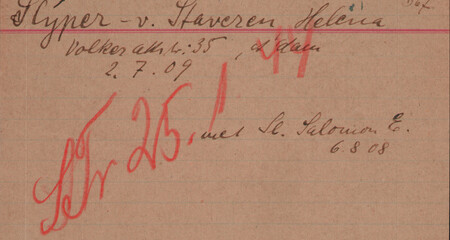 Slyper - v. Staveren, Helena
Volkerakstr: 35, A'dam
2.7.09
Str 25.1.44
met Sl. Salomon E.
6.8.08